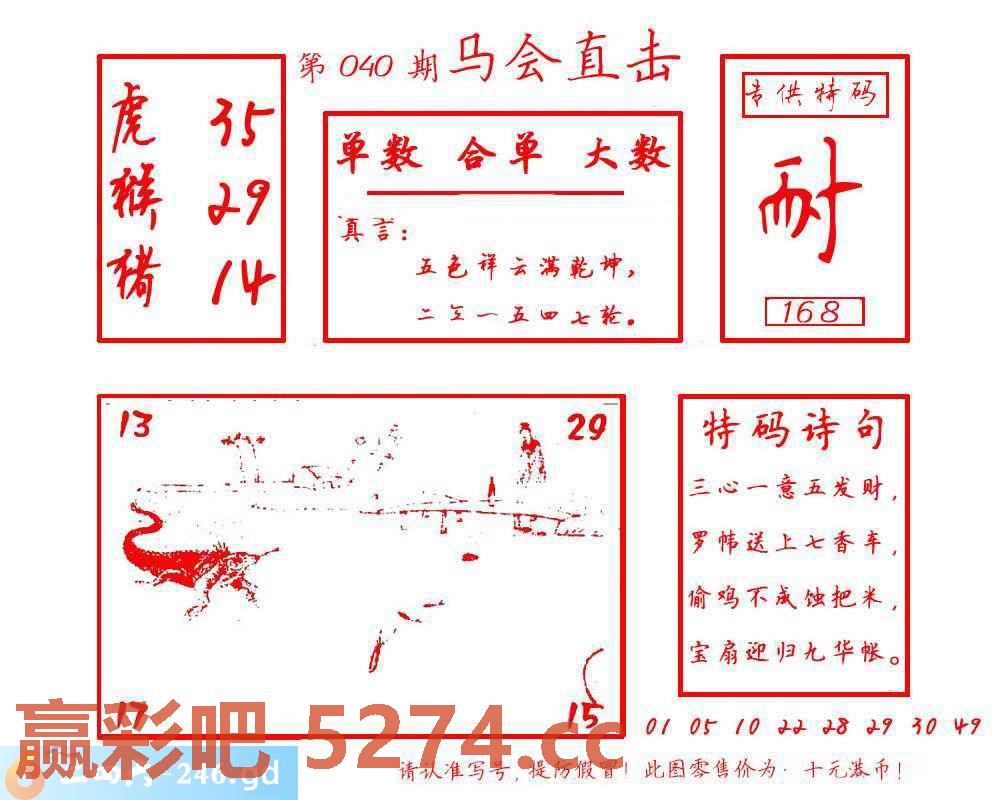 第 040 期 马会直击
虎 35
猴 29
猪 14
单数 合单 大数
真言:
五色祥云满乾坤,
二三一五四七轮。
专供特码
耐
168
13
29
17
15
特码诗句
三心一意五发财,
罗帏送上七香车,
偷鸡不成蚀把米,
宝扇迎归九华帐。
01 05 10 22 28 29 30 49
赢彩吧 5274.cc
-246.gd
请认准写号,提防假冒!此图零售价为·十元港币!